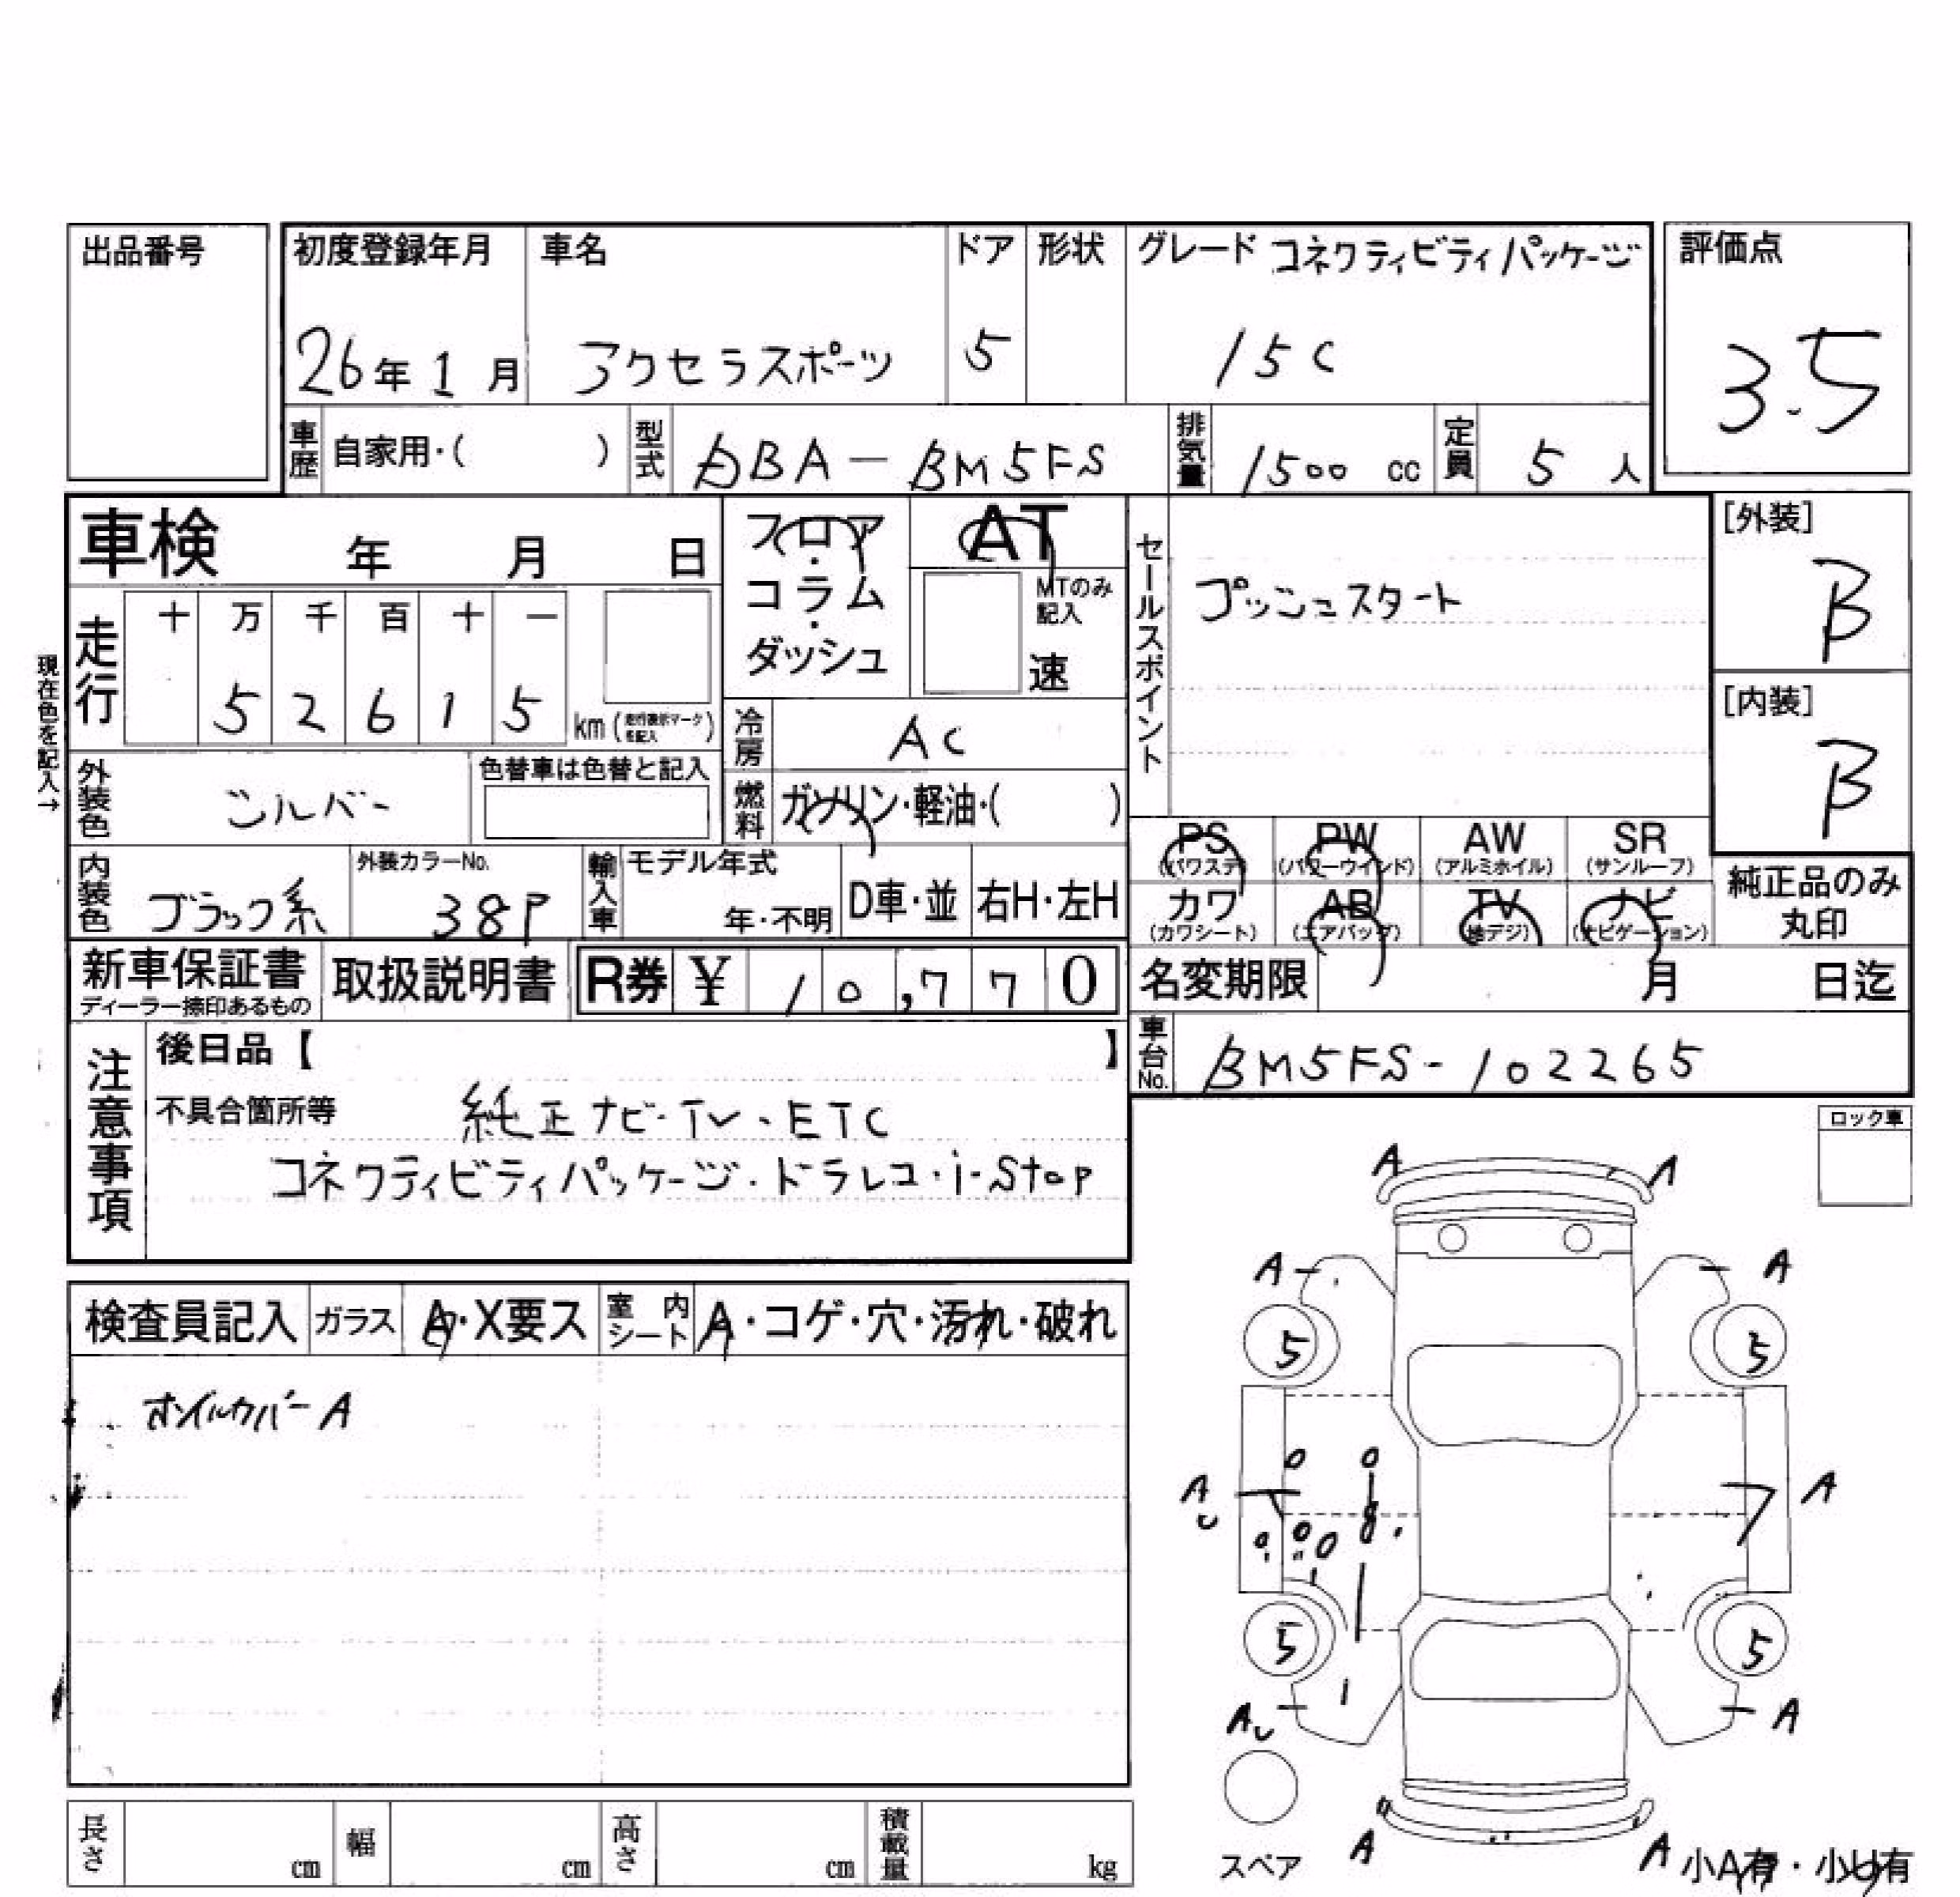 出品番号
初度登録年月 車名 ドア 形状 グレード コネクティビティパッケージ 評価点
26年1月 アクセラスポーツ 5 15C 3.5
車歴 自家用・( ) 型式 DBA-BM5FS 排気量 1500 cc 定員 5 人
車検 年 月 日
フロア・コラム・ダッシュ
AT
MTのみ記入
速
セールスポイント
プッシュスタート
[外装]
B
[内装]
B
現在色を記入→
走行 十 万 千 百 十 一
5 2 6 1 5 km (走行表示マークを記入)
冷房 AC
外装色 シルバー 色替車は色替と記入
燃料 ガソリン・軽油・( )
内装色 ブラック系 外装カラーNo. 38P 輸入車 モデル年式 年・不明 D車・並 右H・左H
PS (パワステ) PW (パワーウインド) AW (アルミホイル) SR (サンルーフ)
カワ (カワシート) AB (エアバッグ) TV (地デジ) ナビ (ナビゲーション)
純正品のみ丸印
新車保証書 ディーラー捺印あるもの 取扱説明書 R券 ¥ 10,770
名変期限 月 日迄
車台No. BM5FS-102265
注意事項
後日品【 】
不具合箇所等 純正ナビ・TV・ETC
コネクティビティパッケージ・ドラレコ・i-Stop
ロック車
検査員記入 ガラス A・X要ス 室内シート A・コゲ・穴・汚れ・破れ
ホイルカバーA
A A
A A
5 5
A A
U
5 5
AU A
スペア A A 小A有・小U有
長さ cm 幅 cm 高さ cm 積載量 kg